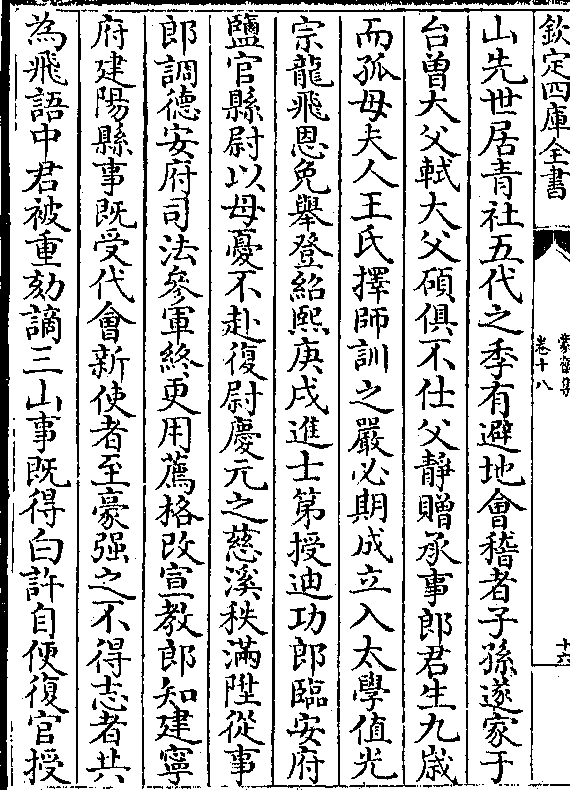 欽定四庫全書
卷十八
山先世居青社五代之季有避地會稽者子孫遂家于
台曽大父軾大父碩俱不仕父靜贈承事郎君生九歳
而孤母夫人王氏擇師訓之嚴必期成立入太學值光
宗龍飛恩免舉登紹熙庚戌進士第授迪功郎臨安府
鹽官縣尉以母憂不赴復尉慶元之慈溪秩滿陞從事
郎調德安府司法參軍終更用薦格改宣教郎知建寧
府建陽縣事既受代會新使者至豪强之不得志者共
為飛語中君被重劾謫三山事既得白許自便復官授